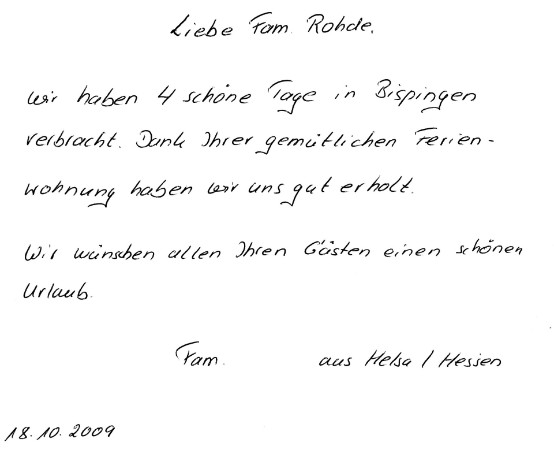 Liebe Fam. Rohde,
wir haben 4 schöne Tage in Bispingen
verbracht. Dank Ihrer gemütlichen Ferien-
wohnung haben wir uns gut erholt.
Wir wünschen allen Ihren Gästen einen schönen
Urlaub.
Fam. aus Helsa / Hessen
18.10.2009